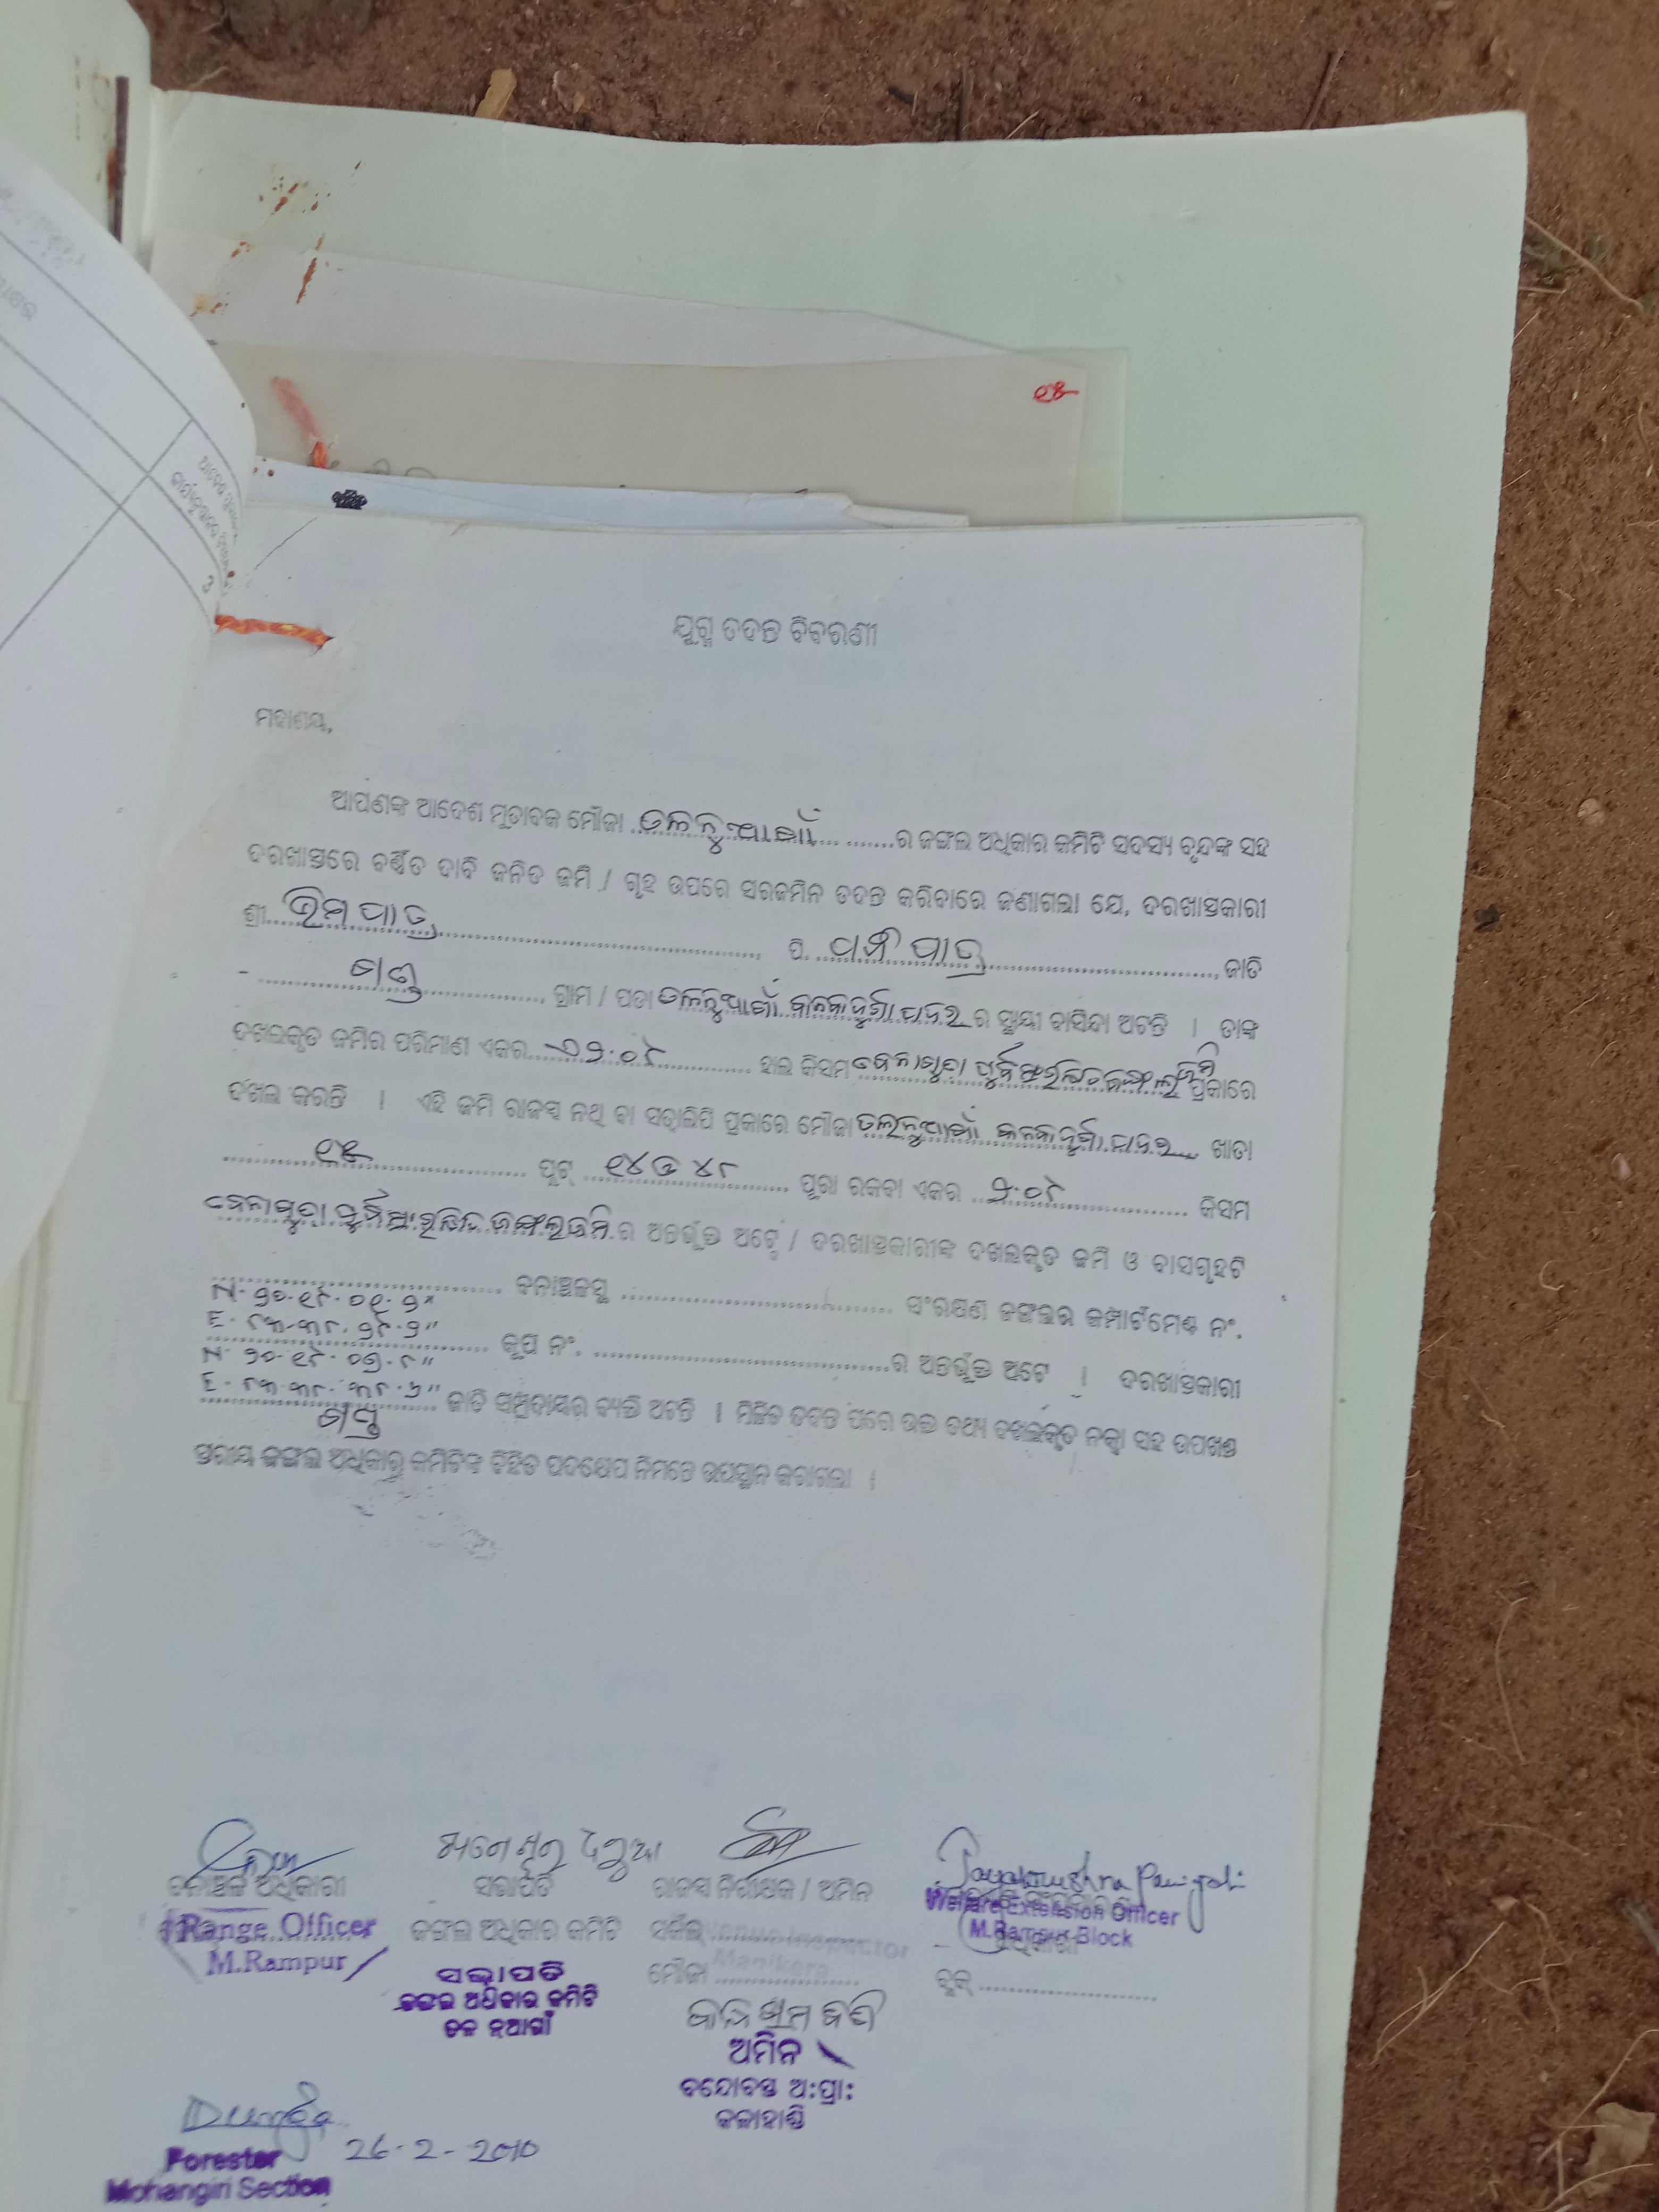 ୧୫
୩
ଯୁଗ୍ମ ତଦନ୍ତ ବିବରଣୀ
ମହାଶୟ,
ଆପଣଙ୍କ ଆଦେଶ ମୁତାବକ ମୌଜା ତଳନୁଆଗାଁ ର ଜଙ୍ଗଲ ଅଧିକାର କମିଟି ସଦସ୍ୟ ବୃନ୍ଦଙ୍କ ସହ
ଦରଖାସ୍ତରେ ବର୍ଣ୍ଣିତ ଦାବି ଜନିତ ଜମି / ଗୃହ ଉପରେ ସରଜମିନ ତଦନ୍ତ କରିବାରେ ଜଣାଗଲା ଯେ, ଦରଖାସ୍ତକାରୀ
ଶ୍ରୀ ପାତ୍ର ପି. ପାତ୍ର ଜାତି
- ଗଣ୍ଡ ଗ୍ରାମ / ପଡା ତଳନୁଆଗାଁ ର ସ୍ଥାୟୀ ବାସିନ୍ଦା ଅଟନ୍ତି । ତାଙ୍କ
ଦଖଲକୃତ ଜମିର ପରିମାଣ ଏକର ୨.୦୮ ହାଲ କିସମ ପ୍ରକାରେ
ଦଖଲ କରନ୍ତି । ଏହି ଜମି ରାଜସ୍ୱ ନଥି ବା ସତ୍ୱଲିପି ପ୍ରକାରେ ମୌଜା ତଳନୁଆଗାଁ ଖାତା
୧୫ ପ୍ଲଟ୍ ୧୪୦ ୪୮ ପୂରା ରକବା ଏକର ୨.୦୮ କିସମ
ଜଙ୍ଗଲ ଜମି ର ଅନ୍ତର୍ଭୁକ୍ତ ଅଟେ / ଦରଖାସ୍ତକାରୀଙ୍କ ଦଖଲକୃତ ଜମି ଓ ବାସଗୃହଟି
ବନାଞ୍ଚଳସ୍ଥ ସଂରକ୍ଷଣ ଜଙ୍ଗଲର କମ୍ପାର୍ଟମେଣ୍ଟ ନଂ.
N- ୨୦-୧୯-୦୧-୨"
E- ୮୩-୩୮-୨୯-୨"
କୂପ ନଂ. ର ଅନ୍ତର୍ଭୁକ୍ତ ଅଟେ । ଦରଖାସ୍ତକାରୀ
N- ୨୦-୧୯-୦୭-୮"
E- ୮୩-୩୮-୩୮-୬"
ଗଣ୍ଡ ଜାତି ସମ୍ପ୍ରଦାୟର ବ୍ୟକ୍ତି ଅଟନ୍ତି । ମିଳିତ ତଦନ୍ତ ପରେ ଉକ୍ତ ତଥ୍ୟ ଦଖଲକୃତ ନକ୍ସା ସହ ଉପଖଣ୍ଡ
ସ୍ତରୀୟ ଜଙ୍ଗଲ ଅଧିକାର କମିଟିଙ୍କ ବିହିତ ପଦକ୍ଷେପ ନିମନ୍ତେ ଉପସ୍ଥାନ କରାଗଲା ।
Jayakrushna Panigrahi
ବନାଞ୍ଚଳ ଅଧିକାରୀ ସଭାପତି ରାଜସ୍ୱ ନିରୀକ୍ଷକ / ଅମିନ
Range Officer ଜଙ୍ଗଲ ଅଧିକାର କମିଟି ସର୍କଲ Revenue Inspector Welfare Extension Officer
M.Rampur ମୌଜା Manikera M.Rampur Block
ସଭାପତି ବ୍ଲକ୍
ଜଙ୍ଗଲ ଅଧିକାର କମିଟି
ତଳ ନୂଆଗାଁ
ଅମିନ
ବନ୍ଦୋବସ୍ତ ଅ:ପ୍ରା:
କଳାହାଣ୍ଡି
Durga
Forester 26-2-2010
Mohangiri Section